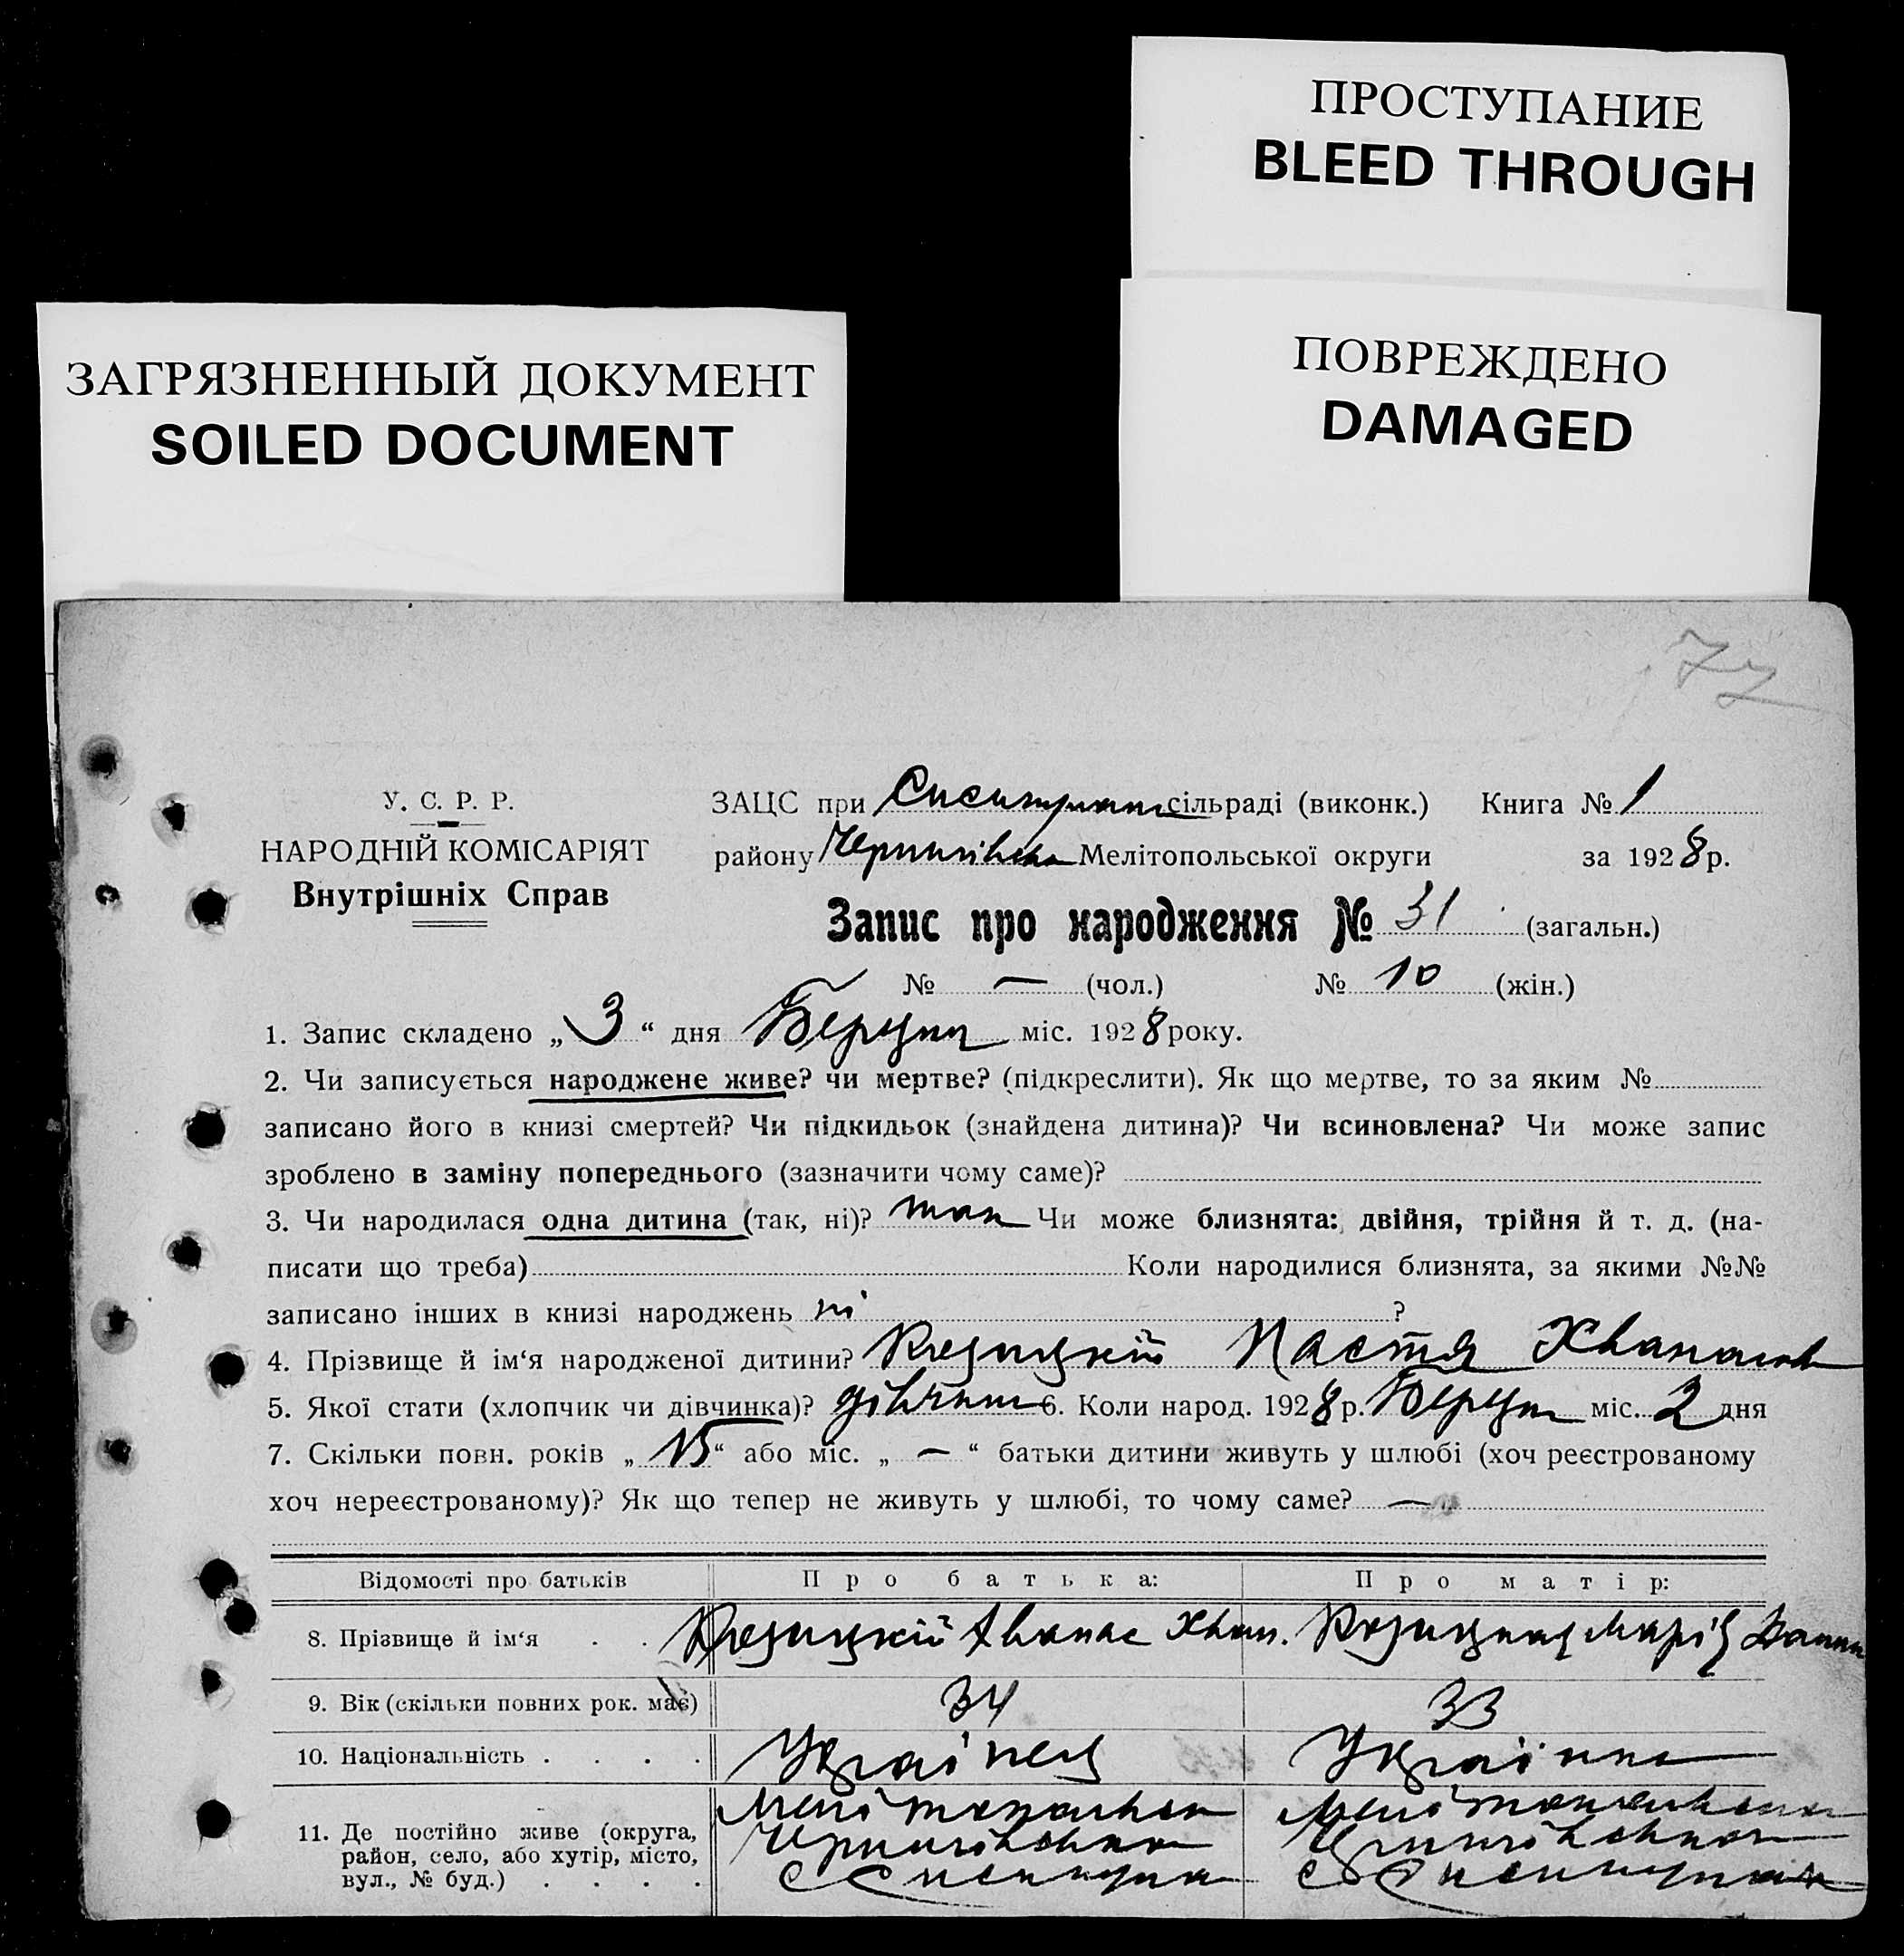 ПРОСТУПАНИЕ
BLEED THROUGH
ЗАГРЯЗНЕННЫЙ ДОКУМЕНТ
SOILED DOCUMENT
ПОВРЕЖДЕНО
DAMAGED
У. С. Р. Р.
НАРОДНІЙ КОМІСАРІЯТ
Внутрішніх Справ
ЗАЦС при сільраді (виконк.) Книга № 1
району Мелітопольської округи за 1928 р.
Запис про народження № 31 (загальн.)
№ — (чол.) № 10 (жін.)
1. Запис складено „ 3 “ дня міс. 1928 року.
2. Чи записується народжене живе? чи мертве? (підкреслити). Як що мертве, то за яким №
записано його в книзі смертей? Чи підкидьок (знайдена дитина)? Чи всиновлена? Чи може запис
зроблено в заміну попереднього (зазначити чому саме)?
3. Чи народилася одна дитина (так, ні)? так Чи може близнята: двійня, трійня й т. д. (на-
писати що треба) Коли народилися близнята, за якими №№
записано інших в книзі народжень ні ?
4. Прізвище й ім‘я народженої дитини? Настя
5. Якої стати (хлопчик чи дівчинка)? 6. Коли народ. 1928 р. міс. 2 дня
7. Скільки повн. років „ 15 “ або міс. „ — “ батьки дитини живуть у шлюбі (хоч реєстрованому
хоч нереєстрованому)? Як що тепер не живуть у шлюбі, то чому саме? —
Відомості про батьків Про батька: Про матір:
8. Прізвище й ім‘я
9. Вік (скільки повних рок. має) 34 33
10. Національність Українец Українка
11. Де постійно живе (округа,
район, село, або хутір, місто,
вул., № буд.)